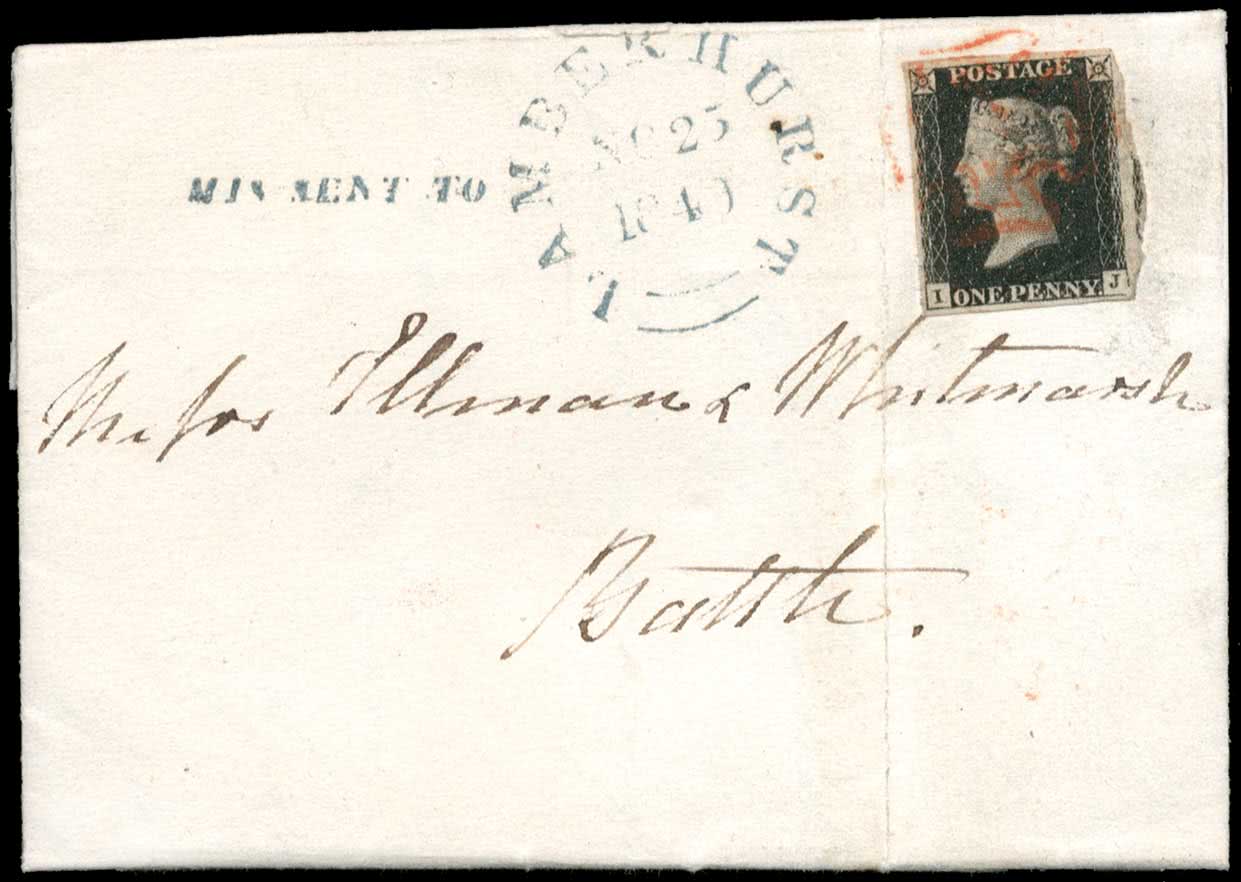 POSTAGE
LAMBERHURST
MIS-SENT TO
NO 25
1840
I ONE PENNY J
Messrs Tillman & Whitmarsh
Battle.